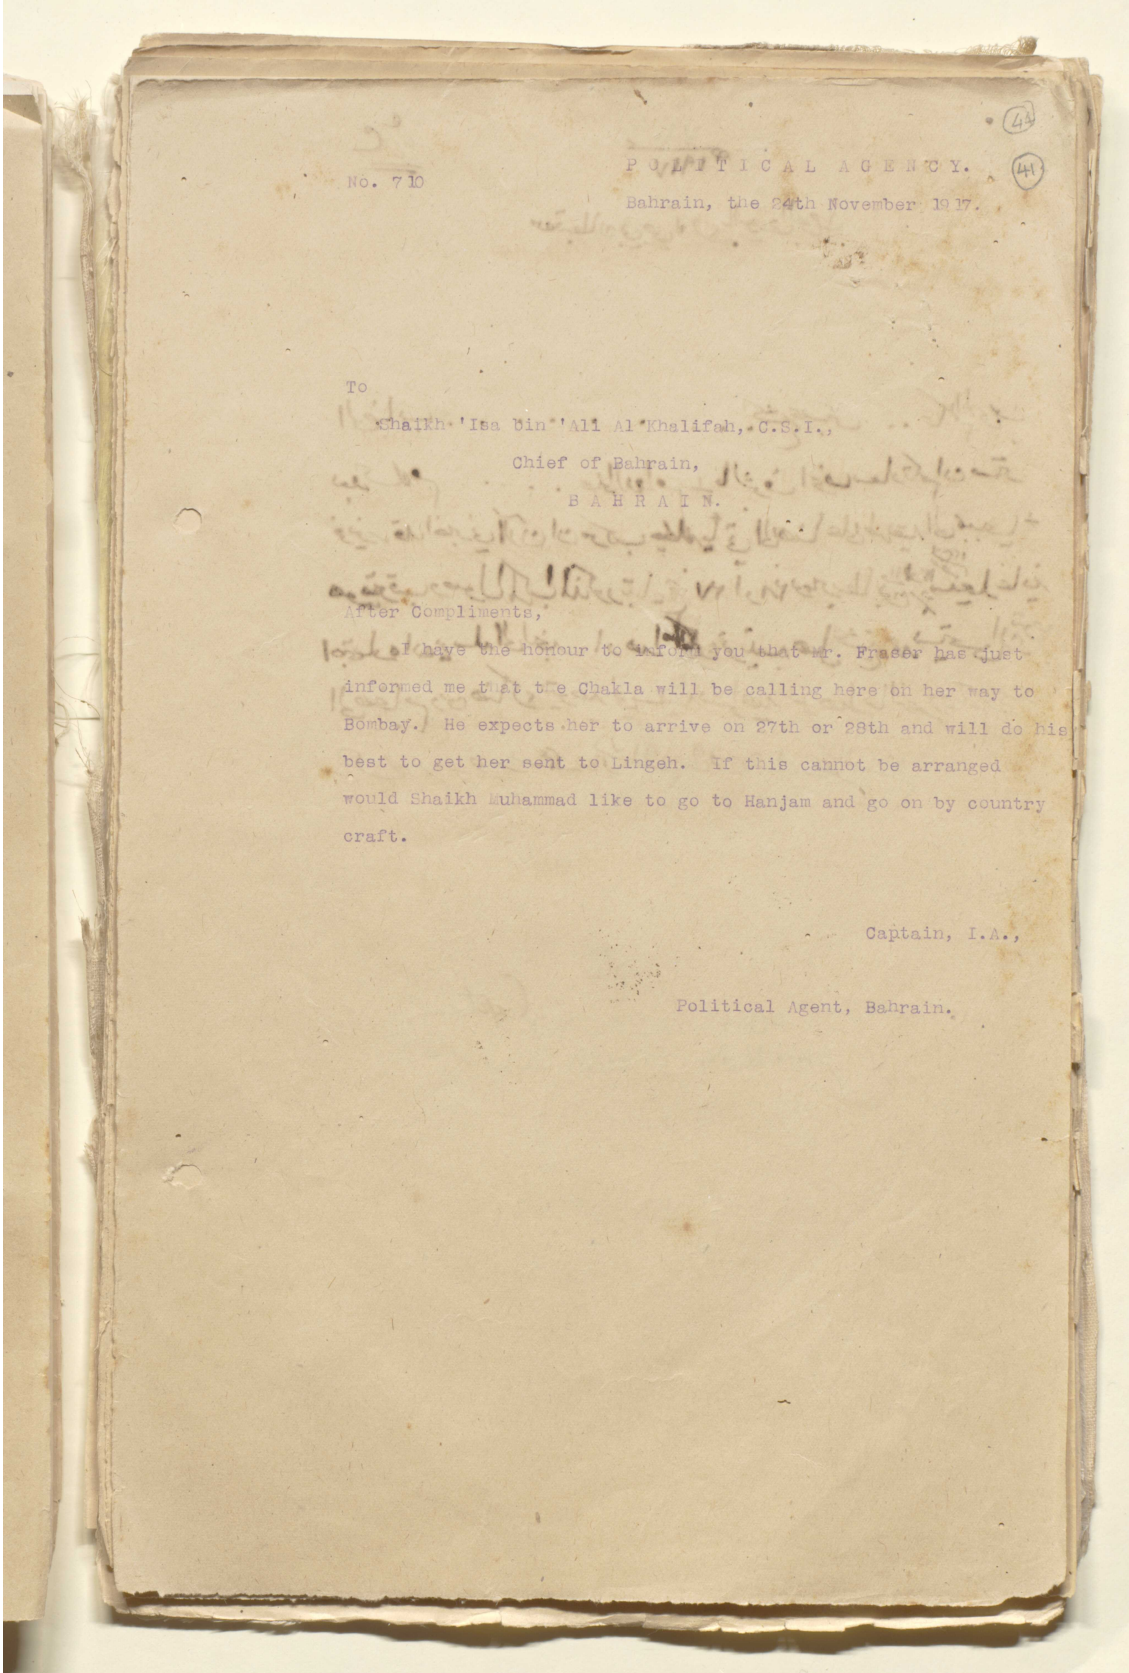 44
POLITICAL AGENCY.
41
No. 710
Bahrain, the 24th November 1917.
To
Shaikh 'Isa bin 'Ali Al Khalifah, C.S.I.,
Chief of Bahrain,
BAHRAIN.
After Compliments,
I have the honour to inform you that Mr. Fraser has just
informed me that the Chakla will be calling here on her way to
Bombay. He expects her to arrive on 27th or 28th and will do his
best to get her sent to Lingeh. If this cannot be arranged
would Shaikh Muhammad like to go to Hanjam and go on by country
craft.
Captain, I.A.,
Political Agent, Bahrain.